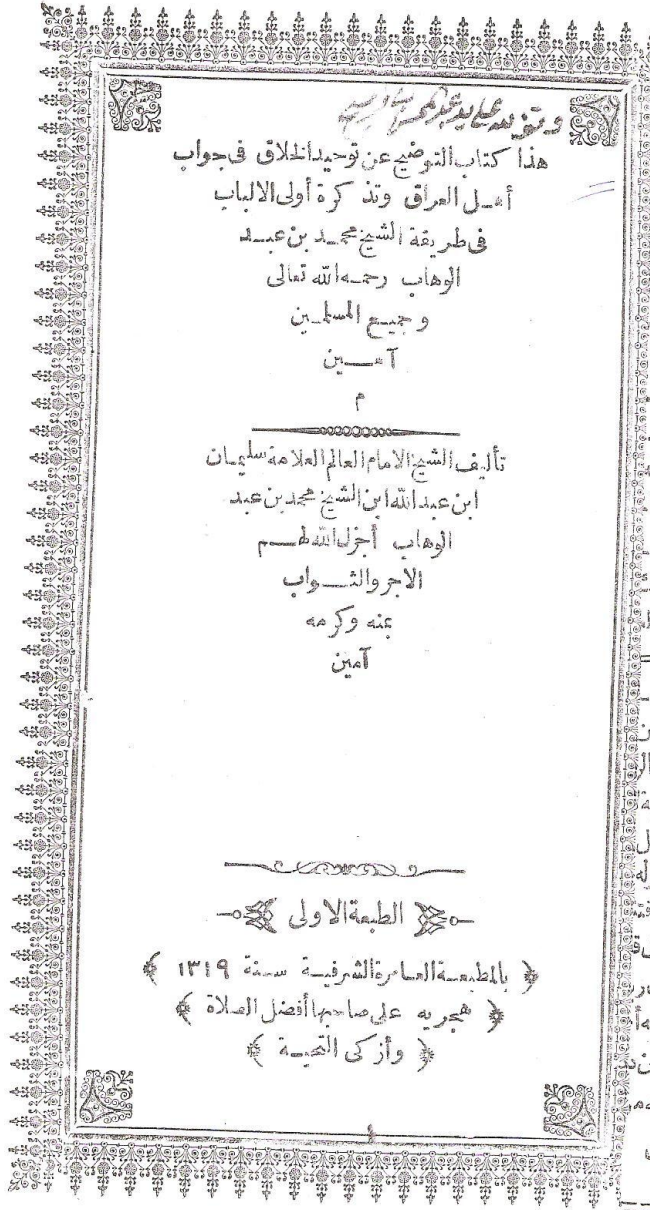 هذا كتاب التوضيح عن توحيد الخلاق فى جواب
أهــل العراق وتذكرة أولى الالباب
فى طريقة الشيخ محمــد بن عبــد
الوهاب رحمــه الله تعالى
وجميــع المسلمــين
آمــــين
م
تأليف الشيخ الامام العالم العلامة سليمــان
ابن عبد الله ابن الشيخ محمد بن عبد
الوهاب أجزل الله لهــــم
الاجر والثــــواب
بمنه وكرمه
آمين
الطبعة الاولى
﴿ بالمطبعــة العــامرة الشرفيــة ســنة ١٣١٩ ﴾
﴿ هجريه على صاحبها أفضل الصلاة ﴾
﴿ وأزكى التحيــة ﴾